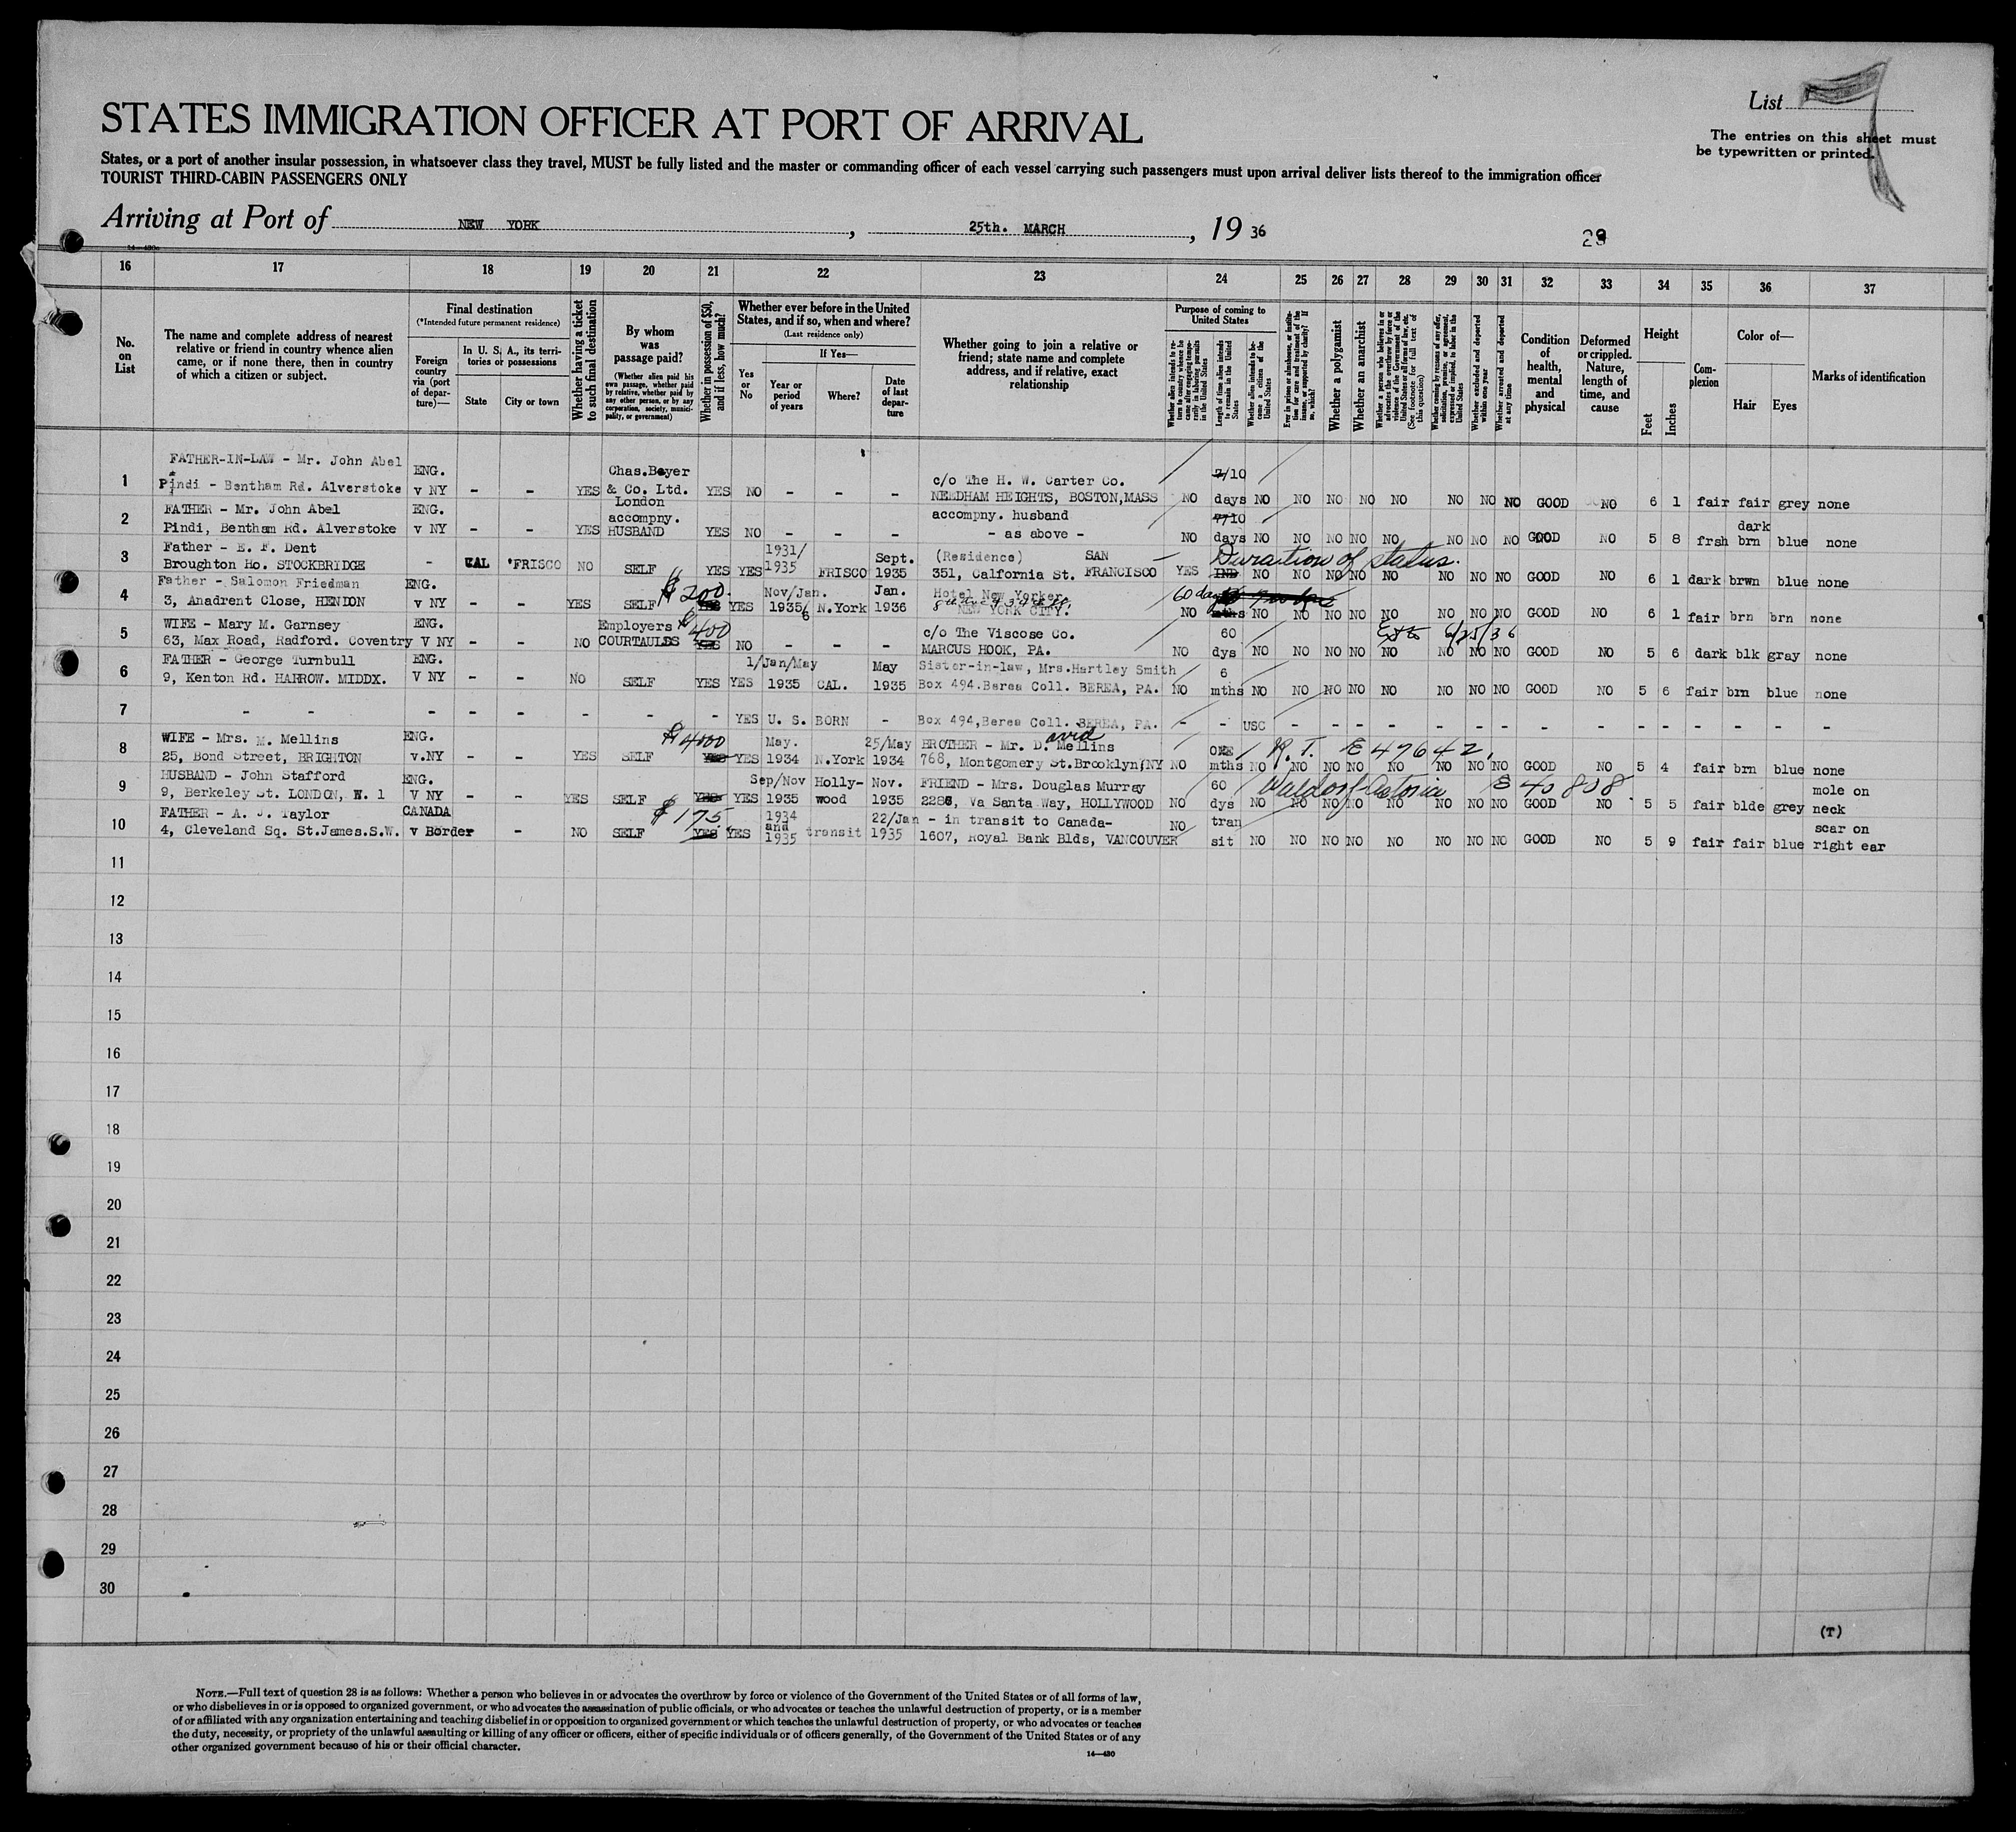 List
STATES IMMIGRATION OFFICER AT PORT OF ARRIVAL
The entries on this sheet must
be typewritten or printed.
States, or a port of another insular possession, in whatsoever class they travel, MUST be fully listed and the master or commanding officer of each vessel carrying such passengers must upon arrival deliver lists thereof to the immigration officer
TOURIST THIRD-CABIN PASSENGERS ONLY
Arriving at Port of NEW YORK, 25th. MARCH, 19 36
16 17 18 19 20 21 22 23 24 25 26 27 28 29 30 31 32 33 34 35 36 37
No. on List
The name and complete address of nearest relative or friend in country whence alien came, or if none there, then in country of which a citizen or subject.
Final destination
(*Intended future permanent residence)
Foreign country via (port of departure)—
In U. S. A., its territories or possessions
State
City or town
Whether having a ticket to such final destination
By whom was passage paid?
(Whether alien paid his own passage, whether paid by relative, whether paid by any other person, or by any corporation, society, municipality, or government)
Whether in possession of $50, and if less, how much?
Whether ever before in the United States, and if so, when and where?
(Last residence only)
Yes or No
If Yes—
Year or period of years
Where?
Date of last departure
Whether going to join a relative or friend; state name and complete address, and if relative, exact relationship
Purpose of coming to United States
Whether alien intends to return to country whence he came after engaging temporarily in laboring pursuits in the United States
Length of time alien intends to remain in the United States
Whether alien intends to become a citizen of the United States
Ever in prison or almshouse, or institution for care and treatment of the insane, or supported by charity? If so, which?
Whether a polygamist
Whether an anarchist
Whether a person who believes in or advocates the overthrow by force or violence of the Government of the United States or all forms of law, etc. (See footnote for full text of this question)
Whether coming by reasons of any offer, solicitation, promise, or agreement, expressed or implied, to labor in the United States
Whether excluded and deported within one year
Whether arrested and deported at any time
Condition of health, mental and physical
Deformed or crippled. Nature, length of time, and cause
Height
Feet
Inches
Complexion
Color of—
Hair
Eyes
Marks of identification
FATHER-IN-LAW - Mr. John Abel ENG. Chas.Beyer c/o The H. W. Carter Co. 7/10
1 Pindi - Bentham Rd. Alverstoke v NY - - YES & Co. Ltd. London YES NO - - - NEEDHAM HEIGHTS, BOSTON,MASS NO days NO NO NO NO NO NO NO NO GOOD NO 6 1 fair fair grey none
FATHER - Mr. John Abel ENG. accompny. accompny. husband 7/10 dark
2 Pindi, Bentham Rd. Alverstoke v NY - - YES HUSBAND YES NO - - - - as above - NO days NO NO NO NO NO NO NO NO GOOD NO 5 8 frsh brn blue none
Father - E. F. Dent 1931/ Sept. (Residence) SAN Duration of status.
3 Broughton Ho. STOCKBRIDGE - CAL *FRISCO NO SELF YES YES 1935 FRISCO 1935 351, Calfornia St. FRANCISCO YES IND NO NO NO NO NO NO NO NO GOOD NO 6 1 dark brwn blue none
Father - Salomon Friedman ENG. $200. Nov/Jan. Jan. Hotel New Yorker 60 days
4 3, Anadrent Close, HENDON v NY - - YES SELF YES YES 1935/6 N.York 1936 NEW YORK CITY. NO mths NO NO NO NO NO NO NO NO GOOD NO 6 1 fair brn brn none
WIFE - Mary M. Garnsey Employers $400 c/o The Viscose Co. 60 Ext 6/25/36
5 63, Max Road, Radford. Coventry V NY - - NO COURTAULDS YES NO - - - MARCUS HOOK, PA. NO dys NO NO NO NO NO NO NO NO GOOD NO 5 6 dark blk gray none
FATHER - George Turnbull ENG. 1/Jan/May May Sister-in-law, Mrs.Hartley Smith 6
6 9, Kenton Rd. HARROW. MIDDX. V NY - - NO SELF YES YES 1935 CAL. 1935 Box 494.Berea Coll. BEREA, PA. NO mths NO NO NO NO NO NO NO NO GOOD NO 5 6 fair brn blue none
7 - - - - - - - - YES U. S. BORN - Box 494,Berea Coll. BEREA, PA. - - USC - - - - - - - - - - - - - - -
WIFE - Mrs. M. Mellins ENG. $4000 May. 25/May BROTHER - Mr. D.avid Mellins ONE R.T. E 47642,
8 25, Bond Street, BRIGHTON v.NY - - YES SELF YES YES 1934 N.York 1934 768, Montgomery St.Brooklyn/NY NO mths NO NO NO NO NO NO NO NO GOOD NO 5 4 fair brn blue none
HUSBAND - John Stafford ENG. Sep/Nov Holly- Nov. FRIEND - Mrs. Douglas Murray 60 Waldorf Astoria E 40808 mole on
9 9, Berkeley St. LONDON, W. 1 V NY - - YES SELF YES YES 1935 wood 1935 2286, Va Santa Way, HOLLYWOOD NO dys NO NO NO NO NO NO NO NO GOOD NO 5 5 fair blde grey neck
FATHER - A. J. Taylor CANADA $175. 1934 and 22/Jan - in transit to Canada- tran scar on
10 4, Cleveland Sq. St.James.S.W. v Border - NO SELF YES YES 1935 transit 1935 1607, Royal Bank Blds, VANCOUVER NO sit NO NO NO NO NO NO NO NO GOOD NO 5 9 fair fair blue right ear
11
12
13
14
15
16
17
18
19
20
21
22
23
24
25
26
27
28
29
30
(T)
NOTE.—Full text of question 28 is as follows: Whether a person who believes in or advocates the overthrow by force or violence of the Government of the United States or of all forms of law,
or who disbelieves in or is opposed to organized government, or who advocates the assassination of public officials, or who advocates or teaches the unlawful destruction of property, or is a member
of or affiliated with any organization entertaining and teaching disbelief in or opposition to organized government or which teaches the unlawful destruction of property, or who advocates or teaches
the duty, necessity, or propriety of the unlawful assaulting or killing of any officer or officers, either of specific individuals or of officers generally, of the Government of the United States or of any
other organized government because of his or their official character.
14—430